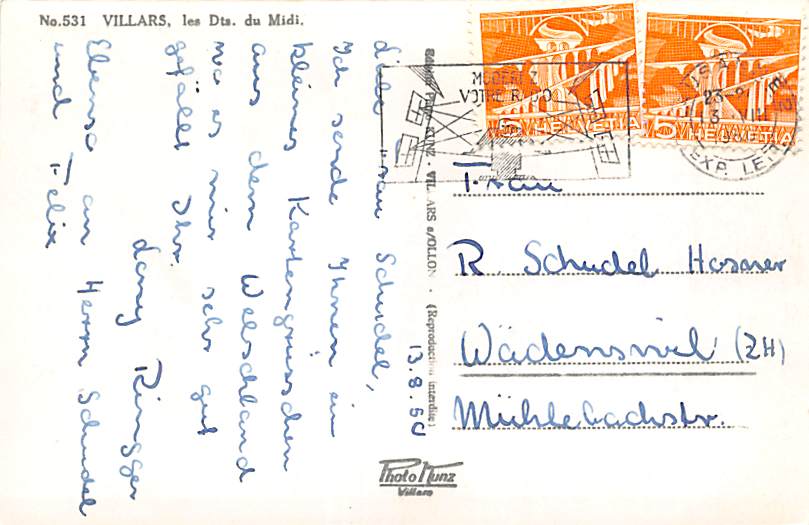 No.531 VILLARS, les Dts. du Midi.
Liebe Frau Schudel,
Ich sende Ihnen ein
kleines Kartengrüsschen
aus dem Welschland
wo es mir sehr gut
gefällt Ihr.
Dany Ringger
Ebenso an Herrn Schudel
und Felix
13.8.50
KUNZ - VILLARS s/OLLON - (Reproduction interdite)
Photo Kunz
Villars
VOTRE RADIO
5 HELVETIA
5 HELVETIA
EXP. LET
Frau
R. Schudel Hosner
Wädenswil (ZH)
Mühlebachstr.